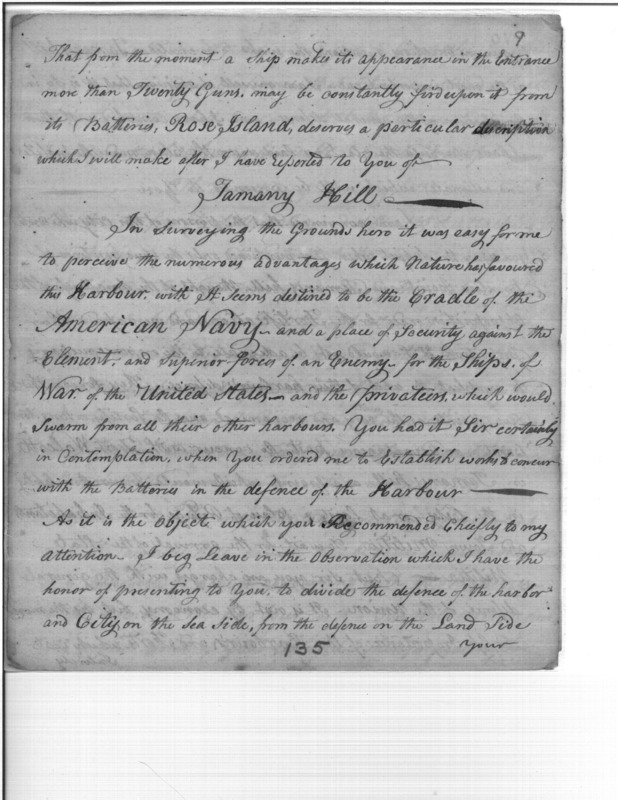 9
That from the moment a Ship makes its appearance in the Entrance
more than Twenty Guns. may be constantly fired upon it from
its Batteries, Rose Island, deserves a particular description
which I will make after I have reported to You of
Tamany Hill
In Surveying the Grounds here it was easy for me
to perceive the numerous advantages which Nature has favoured
this Harbour. with It Seems destined to be the Cradle of the
American Navy and a place of Security against the
Element, and Superior forces of an Enemy for the Ships. of
War of the United States and the privateers. which would
Swarm from all their other harbours. You had it Sir certainly
in Contemplation, when You ordered me to Establish works to concur
with the Batteries in the defence of the Harbour
As it is the Object which you Recommended Chiefly to my
attention. I beg Leave in the Observation which I have the
honor of presenting to You, to divide the defence, of the harbor
and City, on the Sea Side, from the defence on the Land Side
135
your